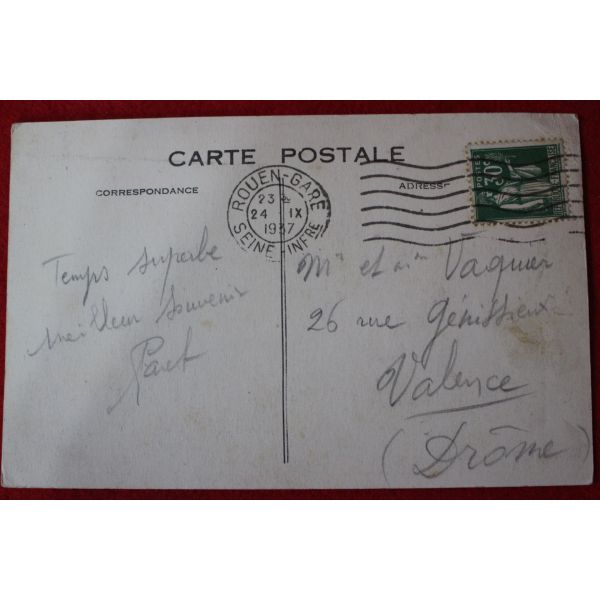 CARTE POSTALE
CORRESPONDANCE
ADRESSE
ROUEN-GARE
23
24 IX
1937
SEINE-INFRE
POSTES
30c
Temps superbe
meilleur souvenir
Mr et Mme Vaquier
26 rue Génissieu
Valence
(Drôme)